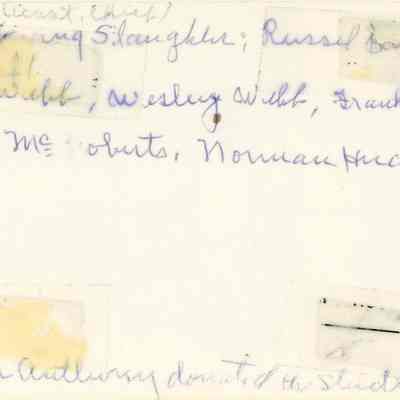 (Asst. Chief)
Slaughter; Russel
Webb, Wesley Webb, Frank
Mc oberts, Norman
Anthony donated the